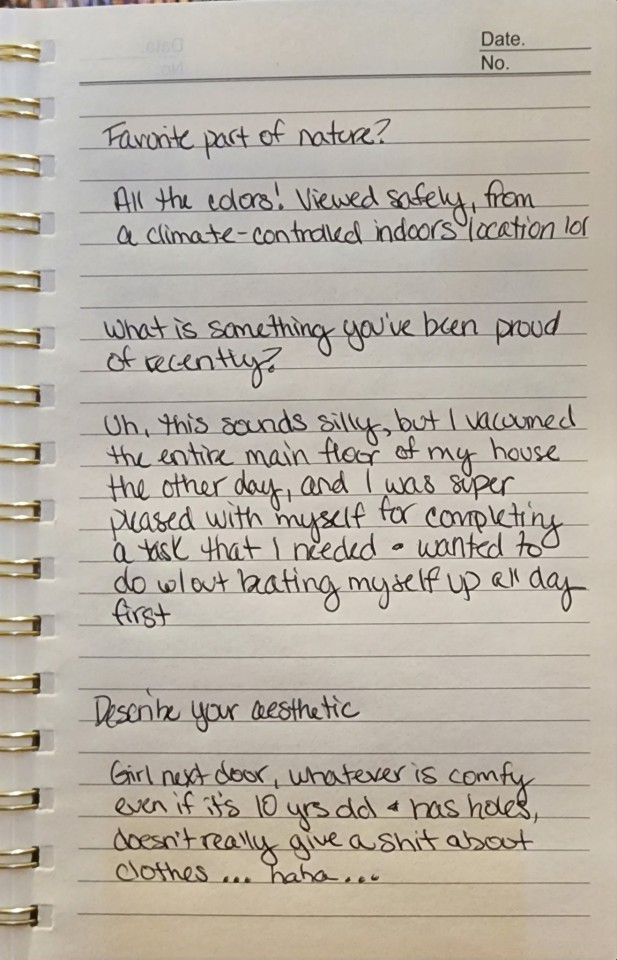 Date.
No.
Favorite part of nature?
All the colors! Viewed safely, from
a climate-controlled indoors location lol
What is something you've been proud
of recently?
Uh, this sounds silly, but I vacuumed
the entire main floor of my house
the other day, and I was super
pleased with myself for completing
a task that I needed & wanted to
do w/out beating myself up all day
first
Describe your aesthetic
Girl next door, whatever is comfy
even if it's 10 yrs old & has holes,
doesn't really give a shit about
clothes ... haha ...